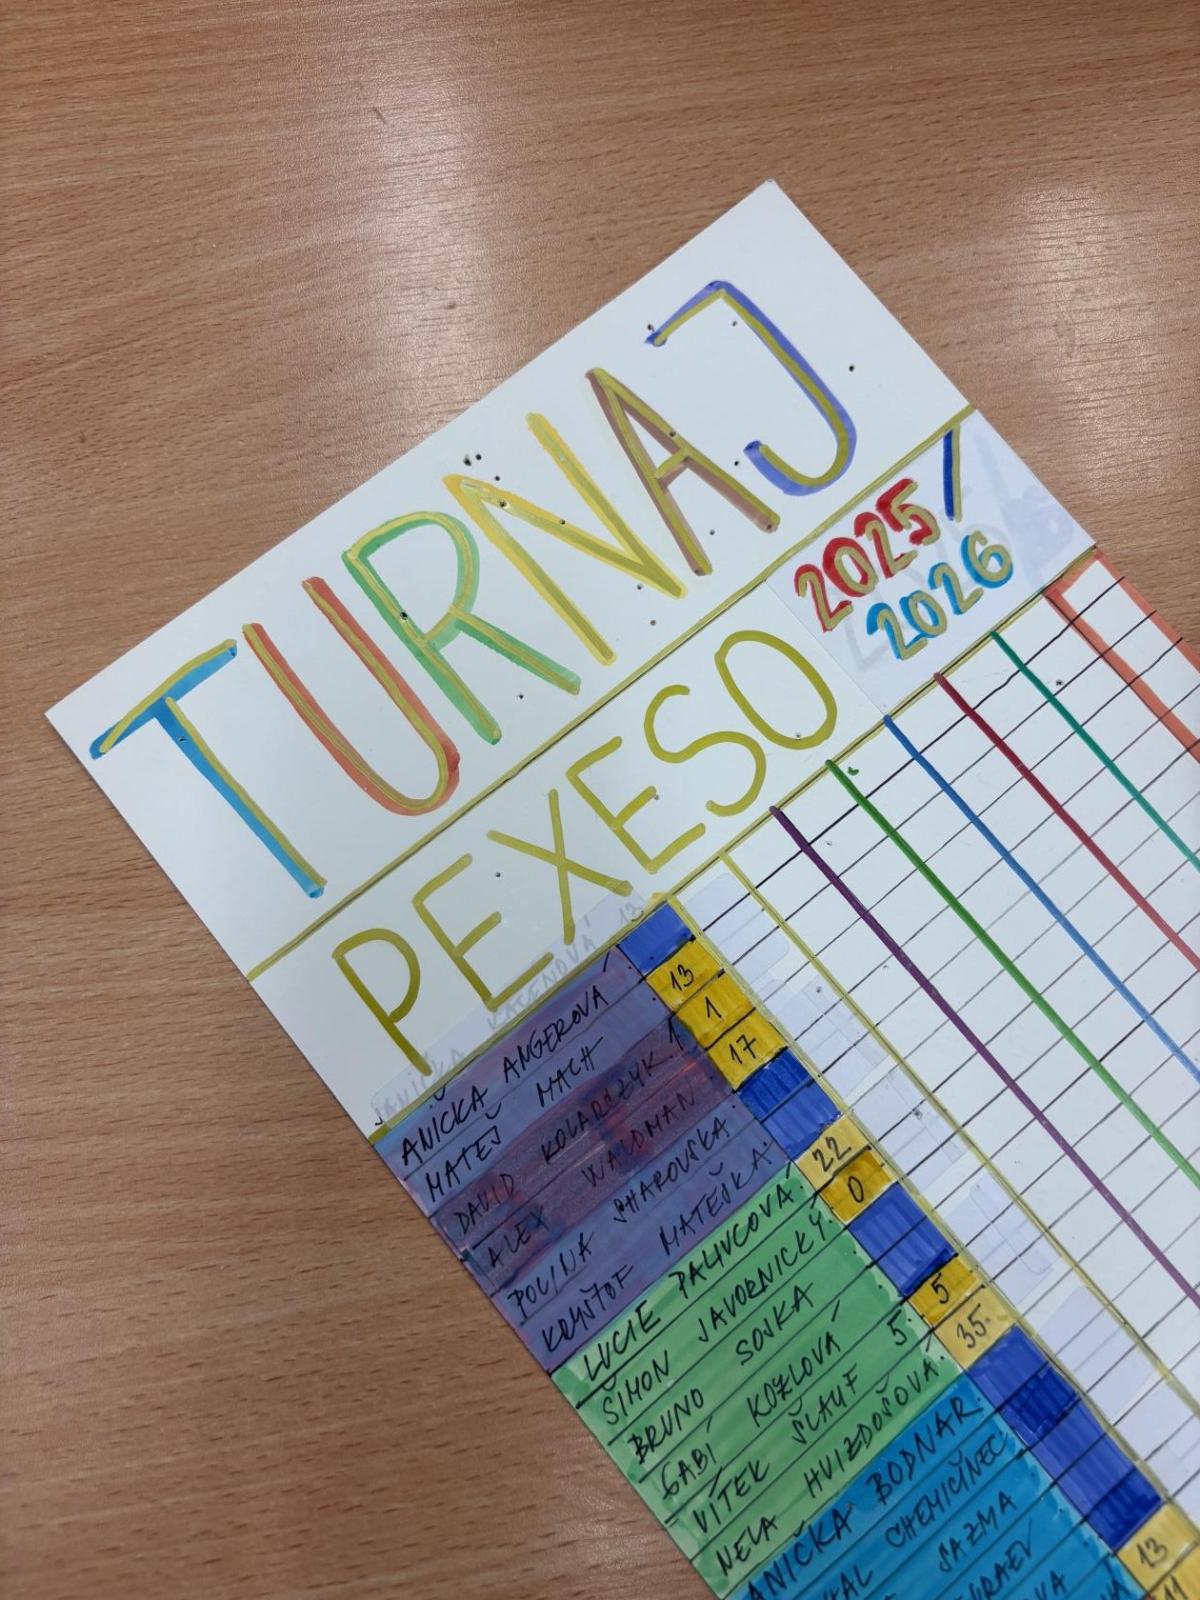 TURNAJ
PEXESO 2025/
2026
ANIČKA ANGEROVÁ 13
MATEJ MACH 1
DAVID KOLARCZYK 1 17
ALEX WALDMAN
POLINA SHAROVSKA
KRYŠTOF MATEŠKA 22
LUCIE PALIVCOVÁ 0
ŠIMON JAVORNICKÝ
BRUNO SOJKA
GABÍ KOZLOVÁ 5
VÍTEK ŠLAUF 5 35
NELA HVIZDOŠOVÁ
ANIČKA BODNAR
CHEMIČINEC
SAZMA
13
11